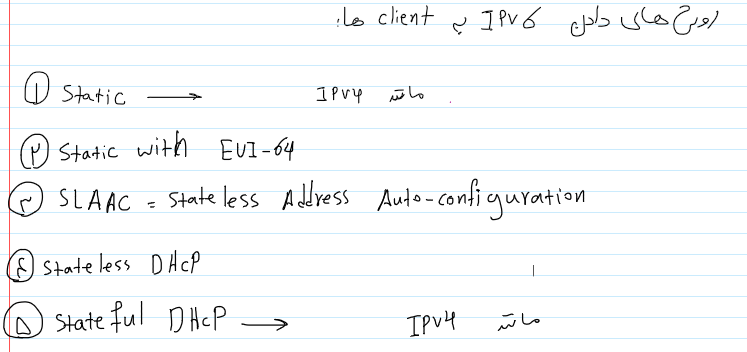 روش های دادن IPV6 به client ها:
① Static ⟶ مانند IPV4
② Static with EUI-64
③ SLAAC = Stateless Address Auto-configuration
④ Stateless DHCP
⑤ Stateful DHCP ⟶ مانند IPV4